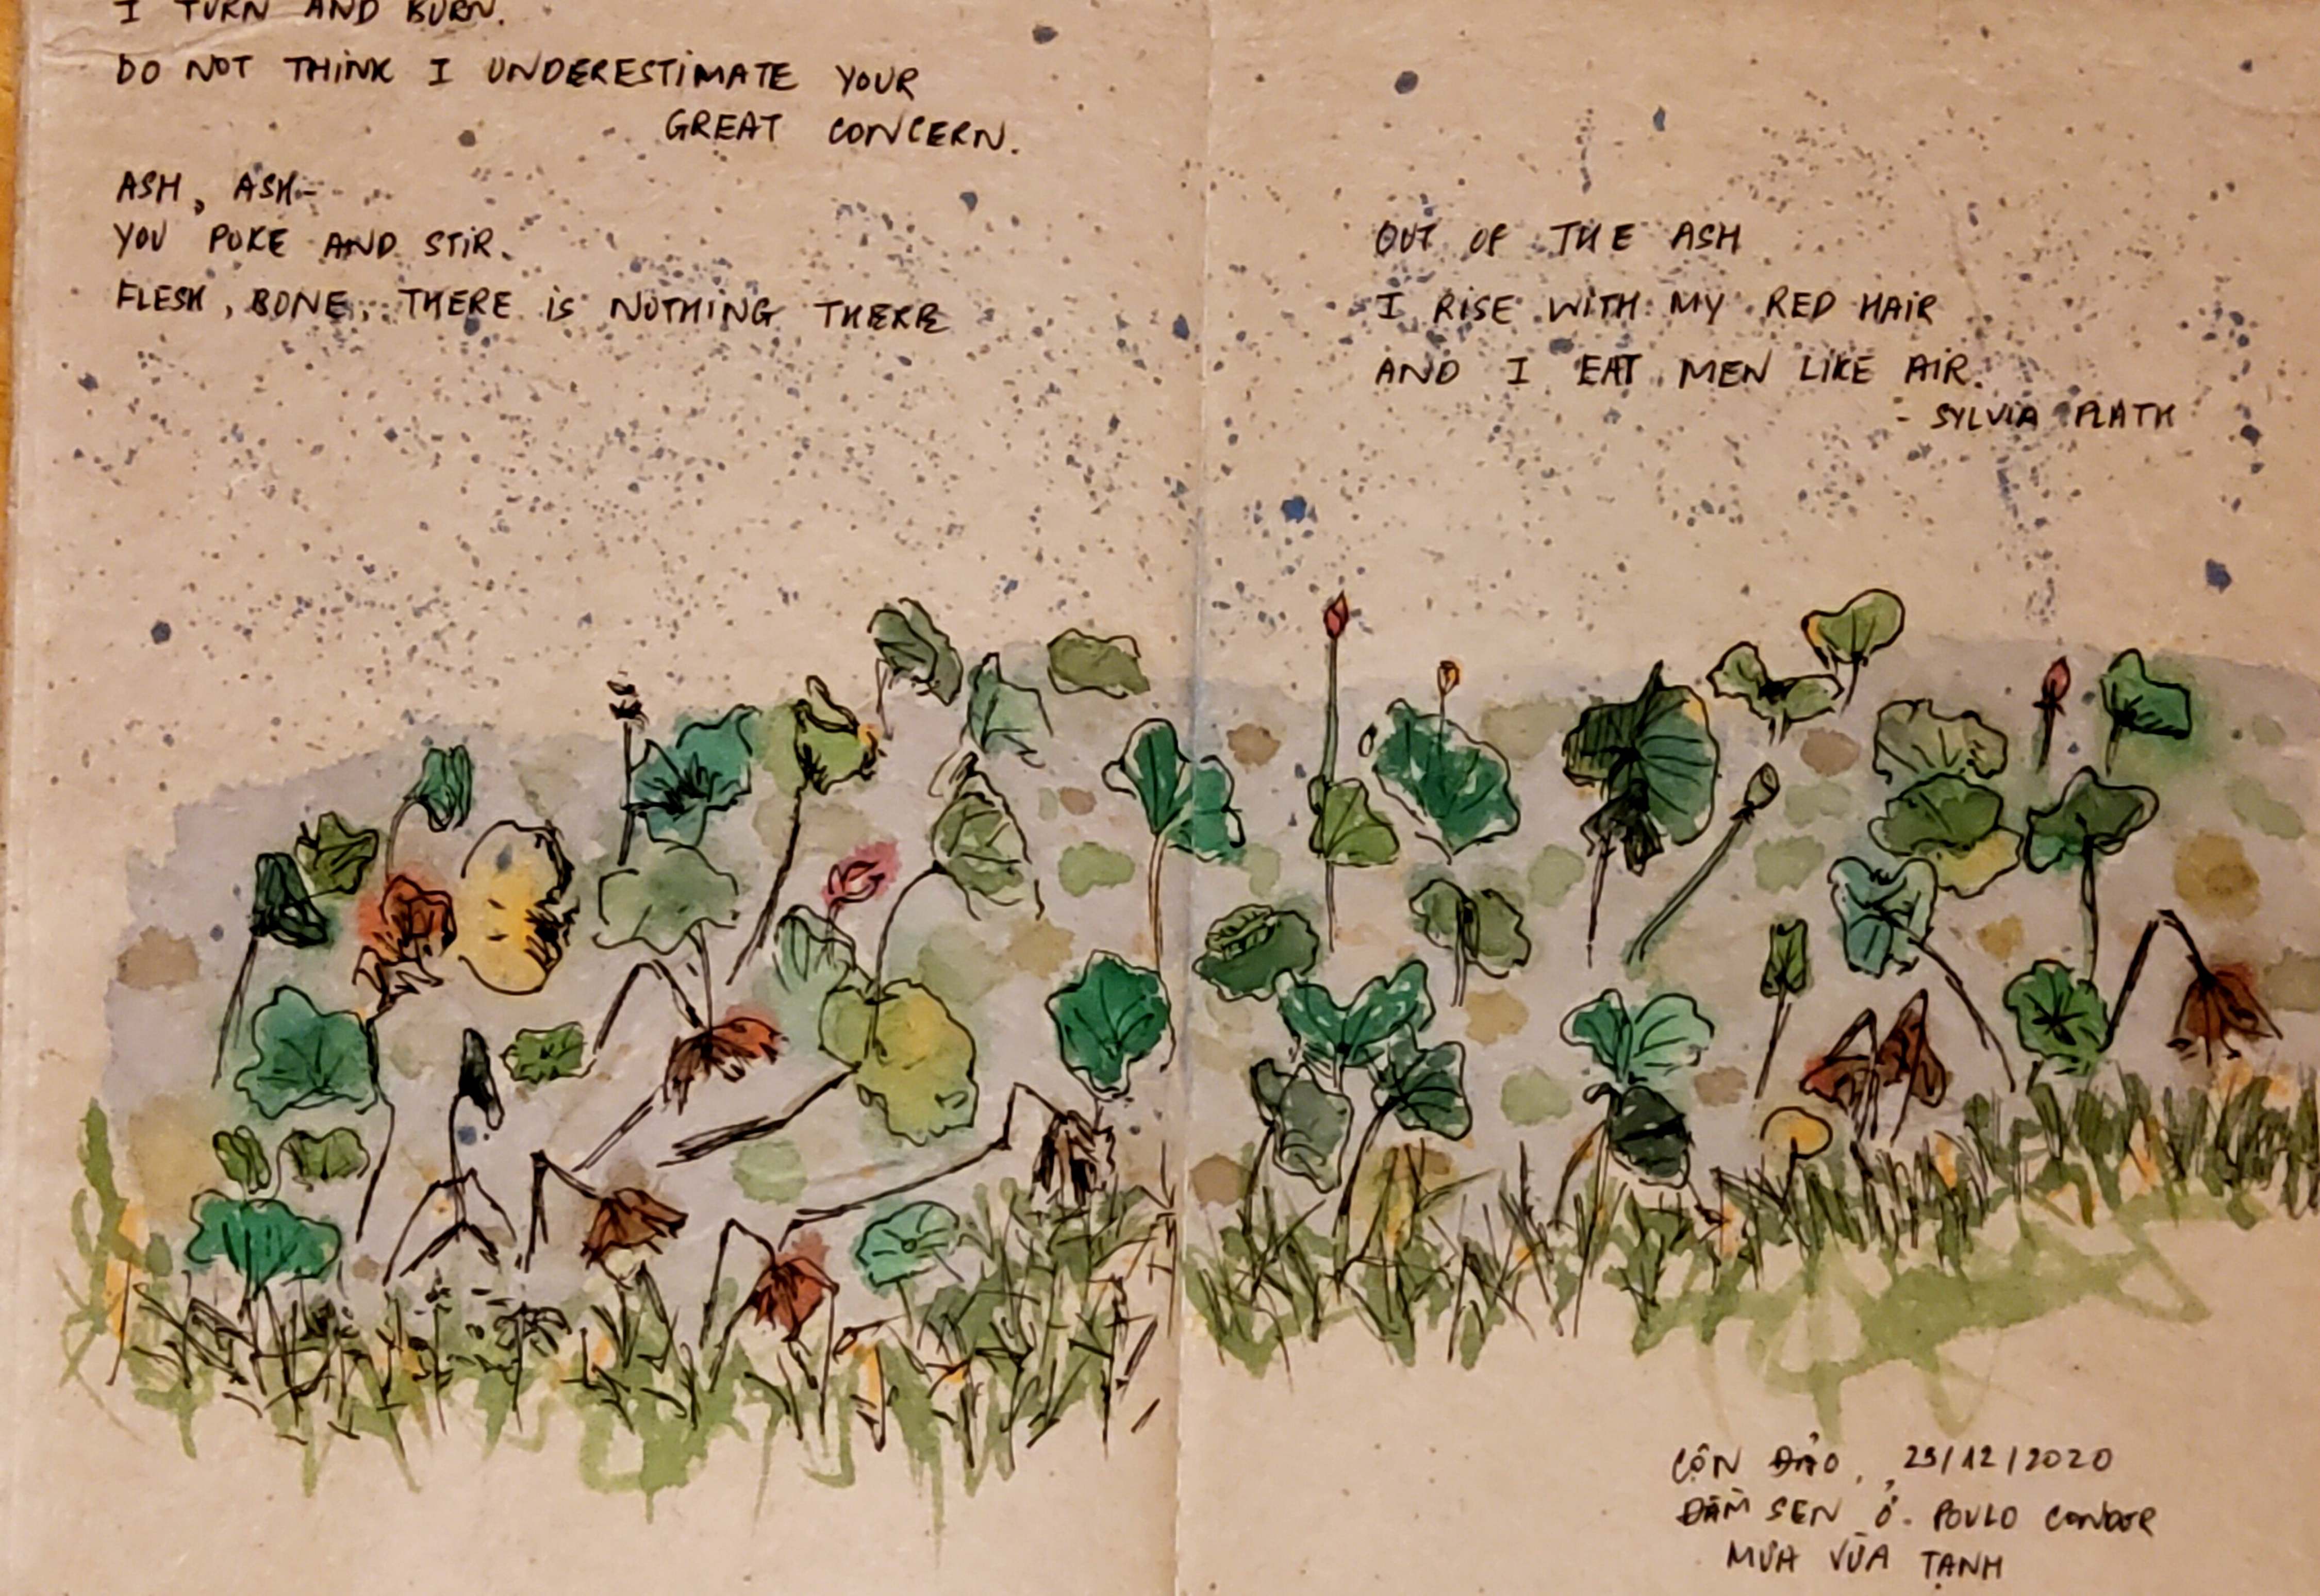 I TURN AND BURN.
DO NOT THINK I UNDERESTIMATE YOUR
GREAT CONCERN.
ASH, ASH-
YOU POKE AND STIR.
FLESH, BONE, THERE IS NOTHING THERE
OUT OF THE ASH
I RISE WITH MY RED HAIR
AND I EAT MEN LIKE AIR.
- SYLVIA PLATH
CÔN ĐẢO, 25/12/2020
ĐẦM SEN Ở POULO CONDOR
MƯA VỪA TẠNH